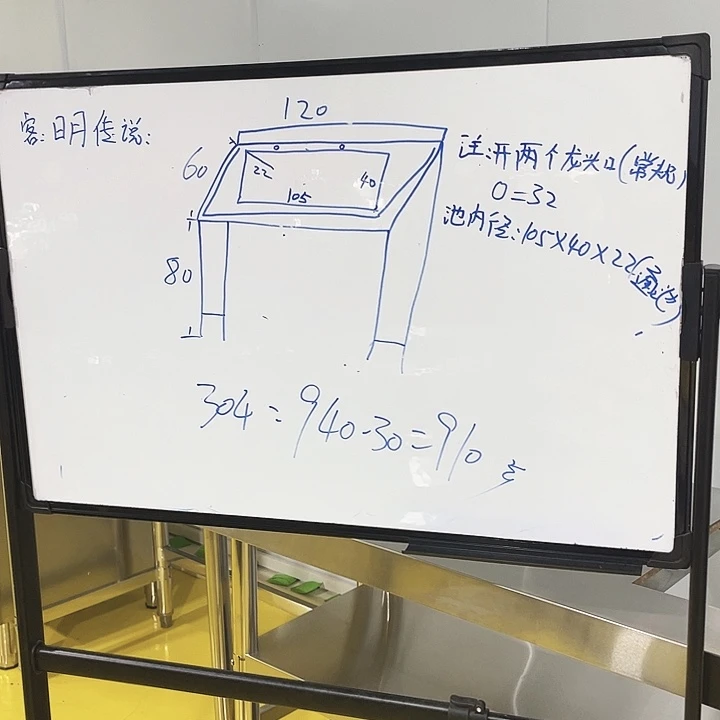 客:日月传说:
120
60
22
105
40
80
注:开两个龙头口(常规)
O=32
池内径:105X40X22(通池)
304=940-30=910